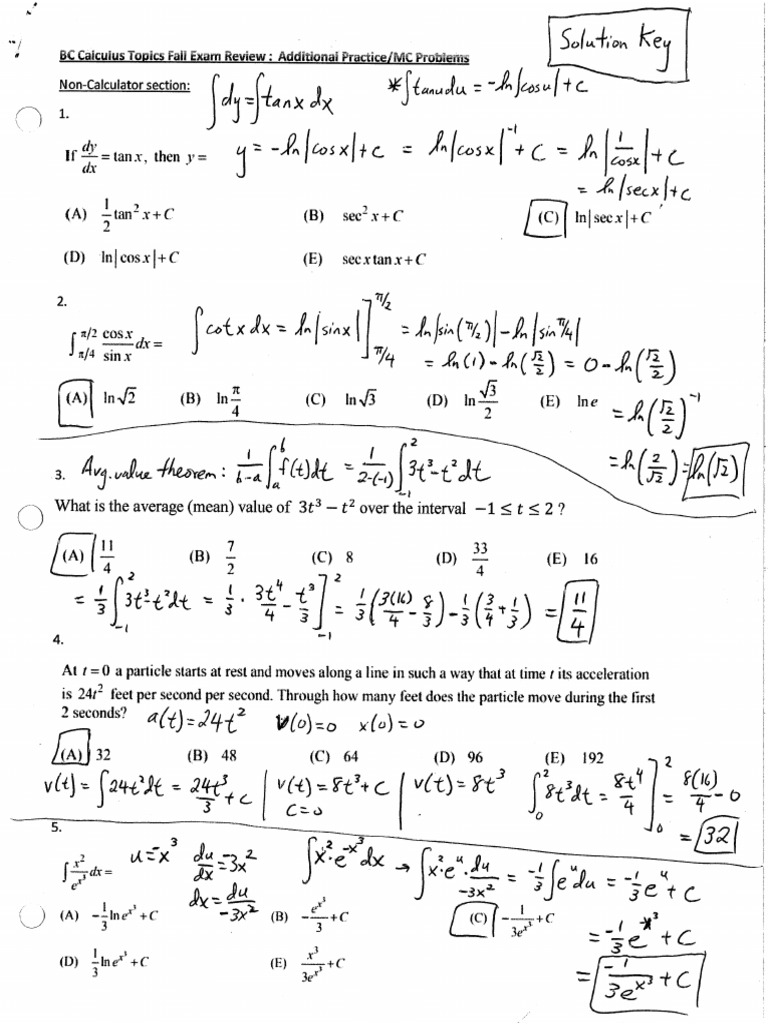 Solution Key
BC Calculus Topics Fall Exam Review : Additional Practice/MC Problems
Non-Calculator section:
∫dy = ∫tanx dx
*∫tanudu = -ln|cosu| + C
1.
If dy/dx = tan x, then y =
y = -ln|cosx| + C = ln|cosx|^-1 + C = ln|1/cosx| + C
= ln|secx| + C
(A) 1/2 tan² x + C (B) sec² x + C (C) ln|sec x| + C
(D) ln|cos x| + C (E) sec x tan x + C
2.
∫π/4^π/2 cos x/sin x dx =
∫cotx dx = ln|sinx|]π/4^π/2 = ln|sin(π/2)| - ln|sin π/4|
= ln(1) - ln(√2/2) = 0 - ln(√2/2)
(A) ln √2 (B) ln π/4 (C) ln √3 (D) ln √3/2 (E) ln e
= ln(√2/2)^-1
= ln(2/√2) = ln(√2)
3.
Avg. value theorem: 1/b-a ∫a^b f(t)dt = 1/2-(-1) ∫-1^2 3t³ - t² dt
What is the average (mean) value of 3t³ − t² over the interval −1 ≤ t ≤ 2 ?
(A) 11/4 (B) 7/2 (C) 8 (D) 33/4 (E) 16
= 1/3 ∫-1^2 3t³ - t² dt = 1/3 · 3t⁴/4 - t³/3 ]-1^2 = 1/3 (3(16)/4 - 8/3) - 1/3 (3/4 + 1/3) = 11/4
4.
At t = 0 a particle starts at rest and moves along a line in such a way that at time t its acceleration
is 24t² feet per second per second. Through how many feet does the particle move during the first
2 seconds?
a(t) = 24t² v(0) = 0 x(0) = 0
(A) 32 (B) 48 (C) 64 (D) 96 (E) 192
v(t) = ∫24t² dt = 24t³/3 + C | v(t) = 8t³ + C | v(t) = 8t³ ∫0^2 8t³ dt = 8t⁴/4 ]0^2 = 8(16)/4 - 0
C = 0
= 32
5.
∫ x²/e^x³ dx =
u = -x³ du/dx = -3x² ∫x²·e^-x³ dx → ∫x²·e^u · du/-3x² = -1/3 ∫e^u du = -1/3 e^u + C
dx = du/-3x²
(A) −1/3 ln e^x³ + C (B) −e^x³/3 + C (C) −1/3e^x³ + C
= -1/3 e^-x³ + C
(D) 1/3 ln e^x³ + C (E) x³/3e^x³ + C
= -1/3e^x³ + C